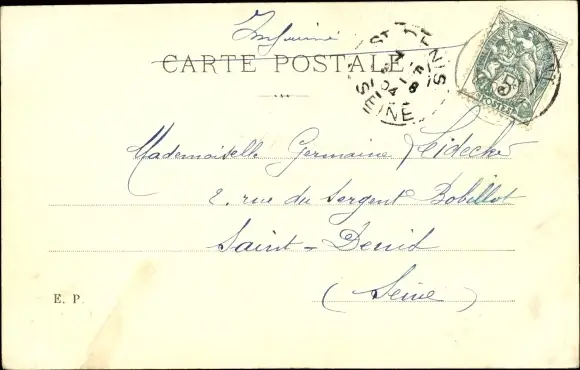 Imprimé
CARTE POSTALE
ST DENIS
SEINE
04
5c
POSTES
Mademoiselle Germaine Heidecker
2. rue du Sergent Bobillot
Saint-Denis
(Seine)
E. P.